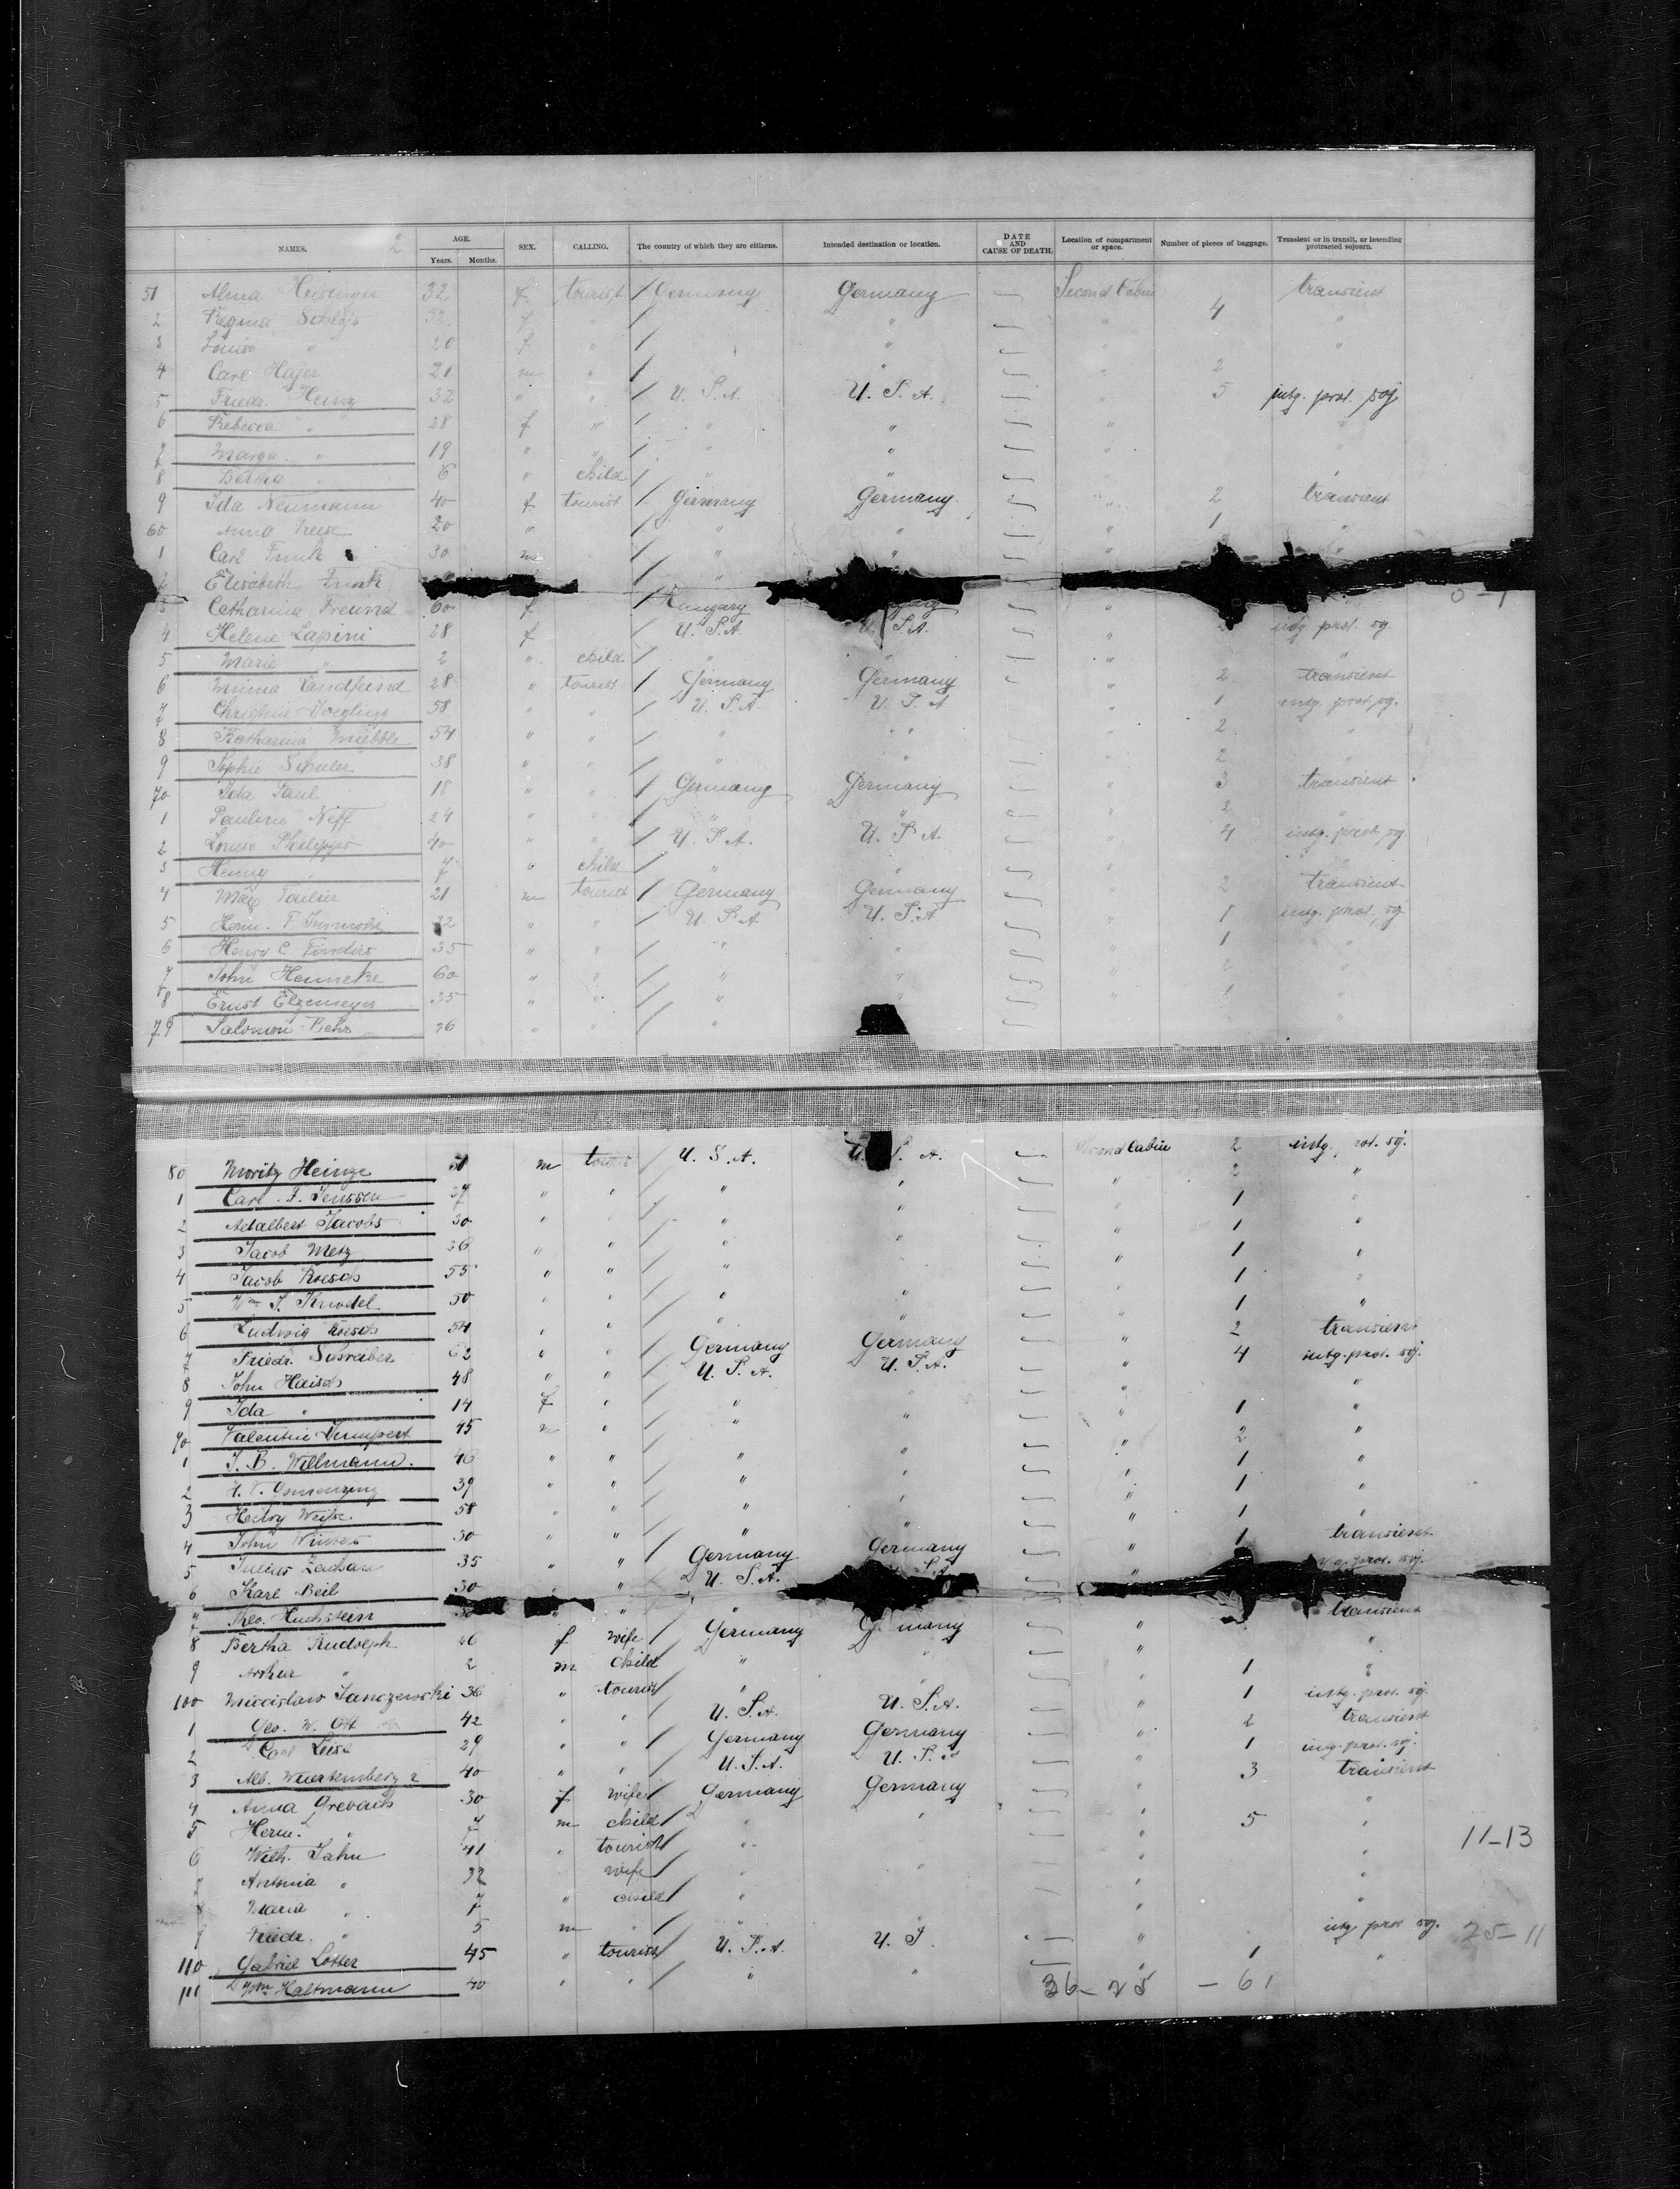 2
NAMES. AGE. Years. Months. SEX. CALLING. The country of which they are citizens. Intended destination or location. DATE AND CAUSE OF DEATH. Location of compartment or space. Number of pieces of baggage. Transient or in transit, or intending protracted sojourn.
51 Alma 32 f tourist Germany Germany — Second Cabin transient
2 Regina Schloss 32 f " " " 4 "
3 Louise " 20 f " " " "
4 Carl Hajer 21 m " " " 2
5 Friedr. Heinz 32 " " U.S.A. U.S.A. " 5 intg. prot. soj.
6 Rebecca " 28 f " " " " "
7 Marga " 19 " " " " "
8 Bertha " 6 " child " " "
9 Ida Neumann 40 f tourist Germany Germany " 2 transient
60 Anna Freese 20 " " " " 1 "
1 Carl Funk 30 m " " " "
2 Elisabeth Funk "
3 Catharina Freund 60 f Hungary " 0-1
4 Helene Lapini 28 f U.S.A. U.S.A. " intg. prot. soj.
5 Marie " 2 " child " " " "
6 Minna Landfeind 28 " tourist Germany Germany " 2 transient
7 Christine 58 " " U.S.A. U.S.A. " 1 intg. prot. soj.
8 Katharina 54 " " " " " 2 "
9 Sophie Schuler 38 " " " " " 2 "
70 Ida Paul 18 " " Germany Germany " 3 transient
1 Pauline Neff 24 " " " " " 2 "
2 Louise Philipps 40 " " U.S.A. U.S.A. " 4 intg. prot. soj.
3 Henny " 7 " child " " " "
4 Max Paulin 21 m tourist Germany Germany " 2 transient
5 Herm. F. 32 " " U.S.A. U.S.A. " 1 intg. prot. soj.
6 Henry C. 35 " " " " " 1 "
7 John Hennecke 60 " " " " " 2 "
8 Ernst Elzemeyer 35 " " " " " 1 "
79 Salomon Behr 36 " " " "
80 Moritz Heinze 51 m U.S.A. U.S.A. Second Cabin 2 intg. prot. soj.
1 Carl F. Jenssen 37 " " " " " 2 "
2 Adalbert Jacobs 30 " " " " " 1 "
3 Jacob Metz 36 " " " " " 1 "
4 Jacob Roesch 55 " " " " 1 "
5 Wm. J. Knodel 50 " " " " " 1 "
6 Ludwig Roesch 54 " " " " " 1 "
7 Friedr. Schreiber 62 " " Germany Germany " 2 transient
8 John Haisch 48 " " U.S.A. U.S.A. " 4 intg. prot. soj.
9 Ida " 14 f " " " " "
90 Valentin Dumpert 45 m " " " " 1 "
1 J. B. Willmann. 46 " " " " " 2 "
2 39 " " " " " 1 "
3 Henry Weisse. 58 " " " " " 1 "
4 John Winters 30 " " " " " 1 "
5 Julius Zachau 35 " " Germany Germany " 1 transient
6 Karl Beil 30 " U.S.A. " prot. soj.
7 Theo. " "
8 Bertha Rudolph 26 f wife Germany Germany " transient
9 Arthur " 2 m child " " " "
100 Miecislaw Janczewski 36 " tourist " " " 1 "
1 Geo. W. Ott 42 " " U.S.A. U.S.A. " 1 intg. prot. soj.
2 Carl 29 " " Germany Germany " 2 transient
3 Alb. Wuertemberger 40 " " U.S.A. U.S.A. " 1 intg. prot. soj.
4 Anna Grebach 30 f wife Germany Germany " 3 transient
5 Herm. " 7 m child " " " "
6 Wilh. Jahn 41 " tourist " " 5 " 11-13
7 Antonia " 32 wife " " " "
8 Maria " 7 " child " " "
9 Friedr. " 5 m " " " " "
110 Gabriel Lotter 45 " tourist U.S.A. U.S. " intg. prot. soj. 25-11
111 Wm. Haltmann 40 " " " " " 1 "
36-25 - 61